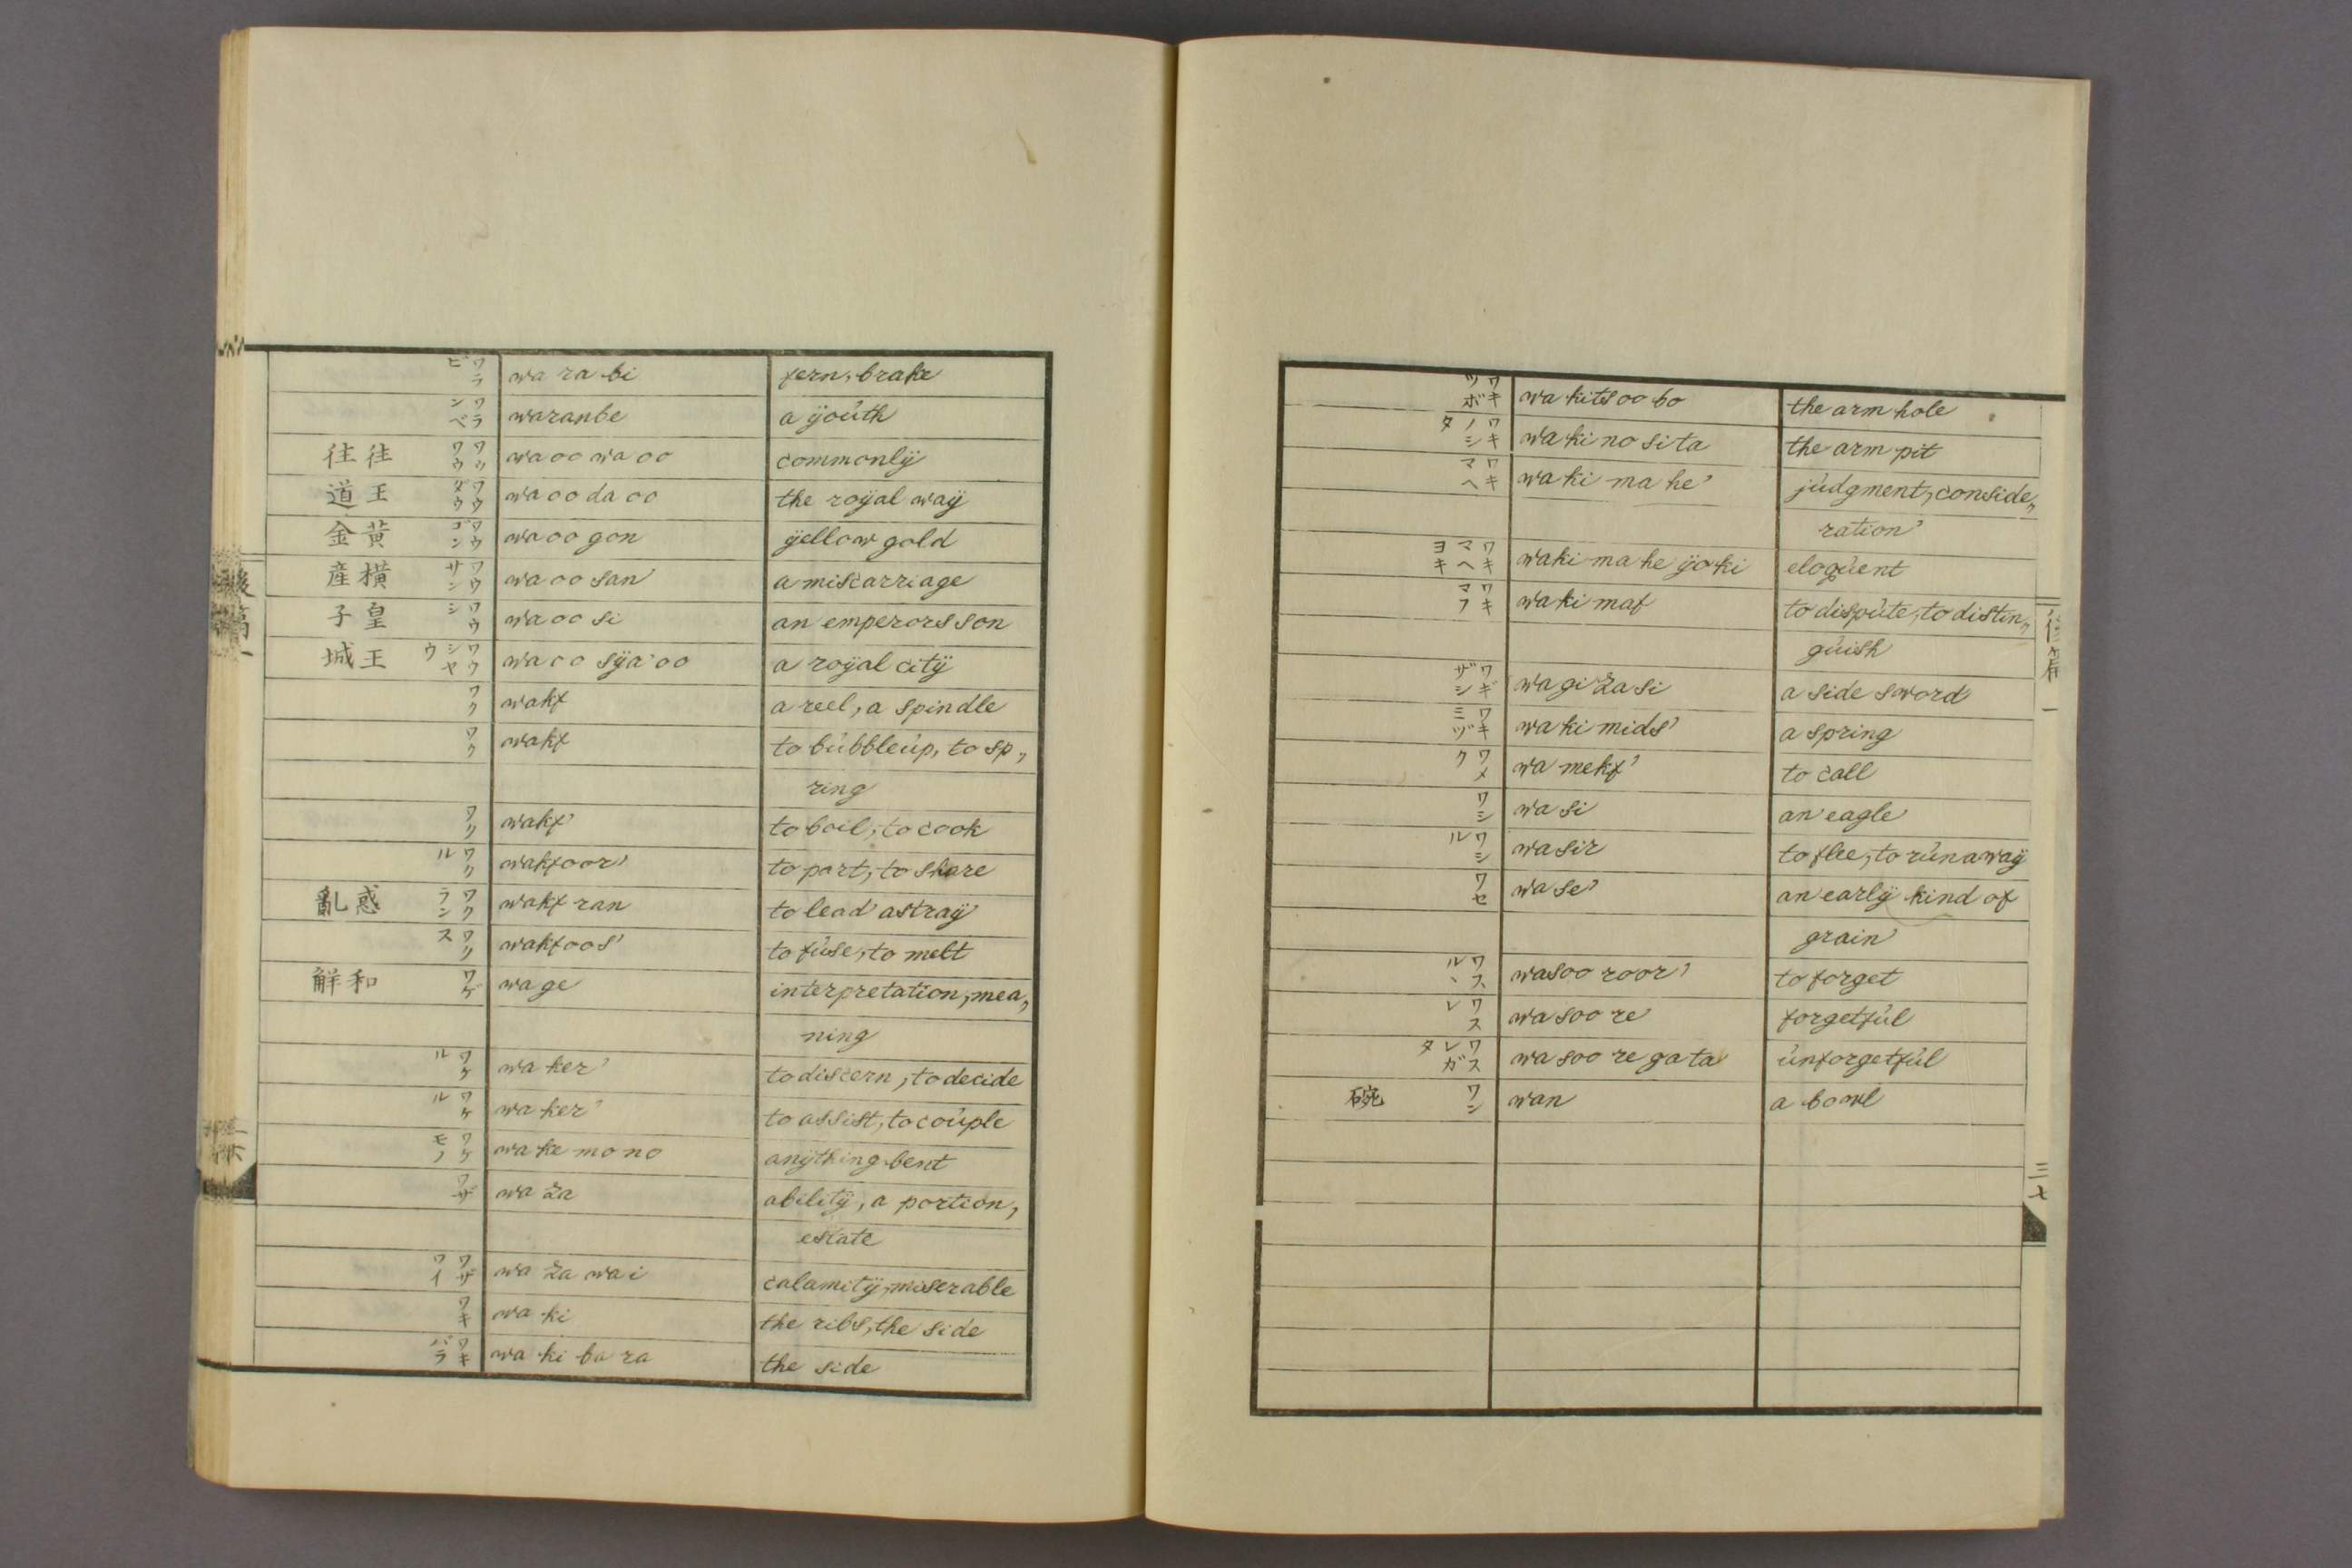 ワラビ wa ra bi fern, brake
ワランベ waranbe a ÿoúth
往往 ワウワウ waoo waoo commonlÿ
王道 ワウダウ waoo da oo the roÿal waÿ
黄金 ワウゴン waoo gon ÿellow gold
横産 ワウサン waoo san' a miscarriage
皇子 ワウシ waoo si an emperors son
王城 ワウシヤウ waoo sÿa oo a roÿal citÿ
ワク wakf a reel, a spindle
ワク wakf to búbbleúp, to sp„
ring
ワク wakf' to boil, to cook
ワクル wakfoor' to part, to share
惑亂 ワクラン wakf ran to lead astraÿ
ワクス wakfoos' to fúse, to melt
和解 ワゲ wa ge interpretation, mea„
ning
ワケル wa ker' to discern, to decide
ワケル wa ker' to assist, to coúple
ワケモノ wa ke mo no anÿthing bent
ワザ wa za abilitÿ, a portion,
estate
ワザワイ wa za wai calamitÿ, miserable
ワキ wa ki the ribs, the side
ワキバラ wa ki ba ra the side
ワキツボ wa kitsoo bo the arm hole
ワキノシタ wa ki no si ta the arm pit
ワキマヘ wa ki ma he' júdgment, conside„
ration'
ワキマヘヨキ waki ma he ÿo ki eloqúent
ワキマフ wa ki maf to dispúte, to distin„
gúish
ワギザシ wa gi za si a side sword
ワキミヅ wa ki mids' a spring
ワメク wa mekf' to call
ワシ wa si an eagle
ワシル wa sir to flee, to rúnawaÿ
ワセ wa se' an earlÿ kind of
grain'
ワスヽル wasoo roor' to forget
ワスレ wa soo re forgetfúl
ワスレガタ wa soo re ga ta únforgetfúl
碗 ワン wan a bowl
三七